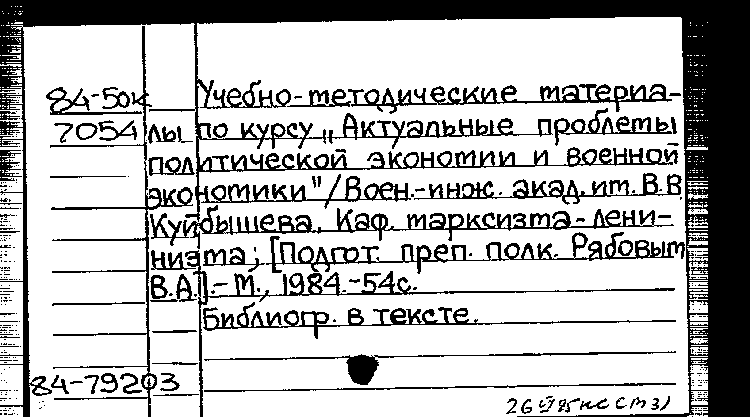 84-50к Учебно-методические материа-
7054 лы по курсу „Актуальные проблемы
политической экономии и военной
экономики"/Воен.-инж. акад. им. В.В.
Куйбышева. Каф. марксизма-лени-
низма; [Подгот. преп. полк. Рябовым
В.А.].- М., 1984.-54с.
Библиогр. в тексте.
84-79203